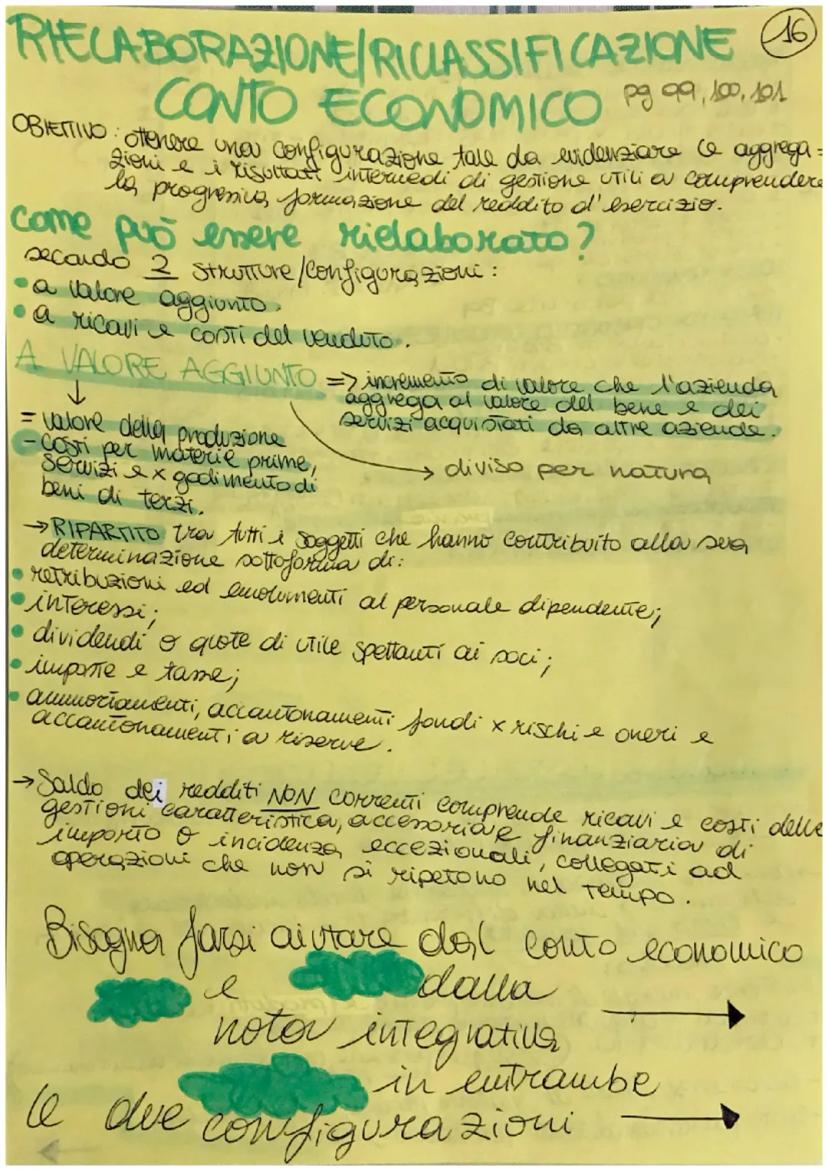 RIELABORAZIONE/RICLASSIFICAZIONE
16
CONTO ECONOMICO pg 99, 100, 101
OBIETTIVO: ottenere una configurazione tale da evidenziare le aggrega=
zioni e i risultati intermedi di gestione utili a comprendere
la progressiva formazione del reddito d'esercizio.
come può essere rielaborato?
secondo 2 strutture/configurazioni:
• a valore aggiunto.
• a ricavi e costi del venduto.
A VALORE AGGIUNTO => incremento di valore che l'azienda
aggrega al valore del bene e dei
servizi acquistati da altre aziende.
= valore della produzione
- costi per materie prime,
servizi e x godimento di
beni di terzi.
→ diviso per natura
→ RIPARTITO tra tutti i soggetti che hanno contribuito alla sua
determinazione sottoforma di:
• retribuzioni ed emolumenti al personale dipendente;
• interessi;
• dividendi o quote di utile spettanti ai soci;
• imposte e tasse;
• ammortamenti, accantonamenti fondi x rischi e oneri e
accantonamenti a riserve.
→ Saldo dei redditi NON correnti comprende ricavi e costi delle
gestioni caratteristica, accessoria e finanziaria di
importo o incidenza eccezionali, collegati ad
operazioni che non si ripetono nel tempo.
Bisogna farsi aiutare dal conto economico
e dalla
nota integrativa →
in entrambe
le due configurazioni →